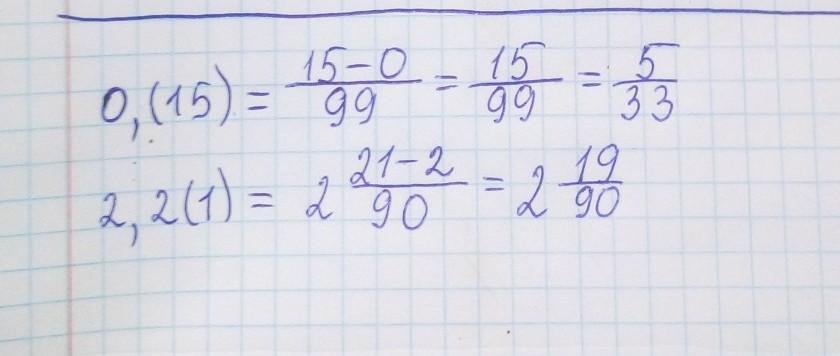 0,(15) = \frac{15-0}{99} = \frac{15}{99} = \frac{5}{33}
2,2(1) = 2\frac{21-2}{90} = 2\frac{19}{90}